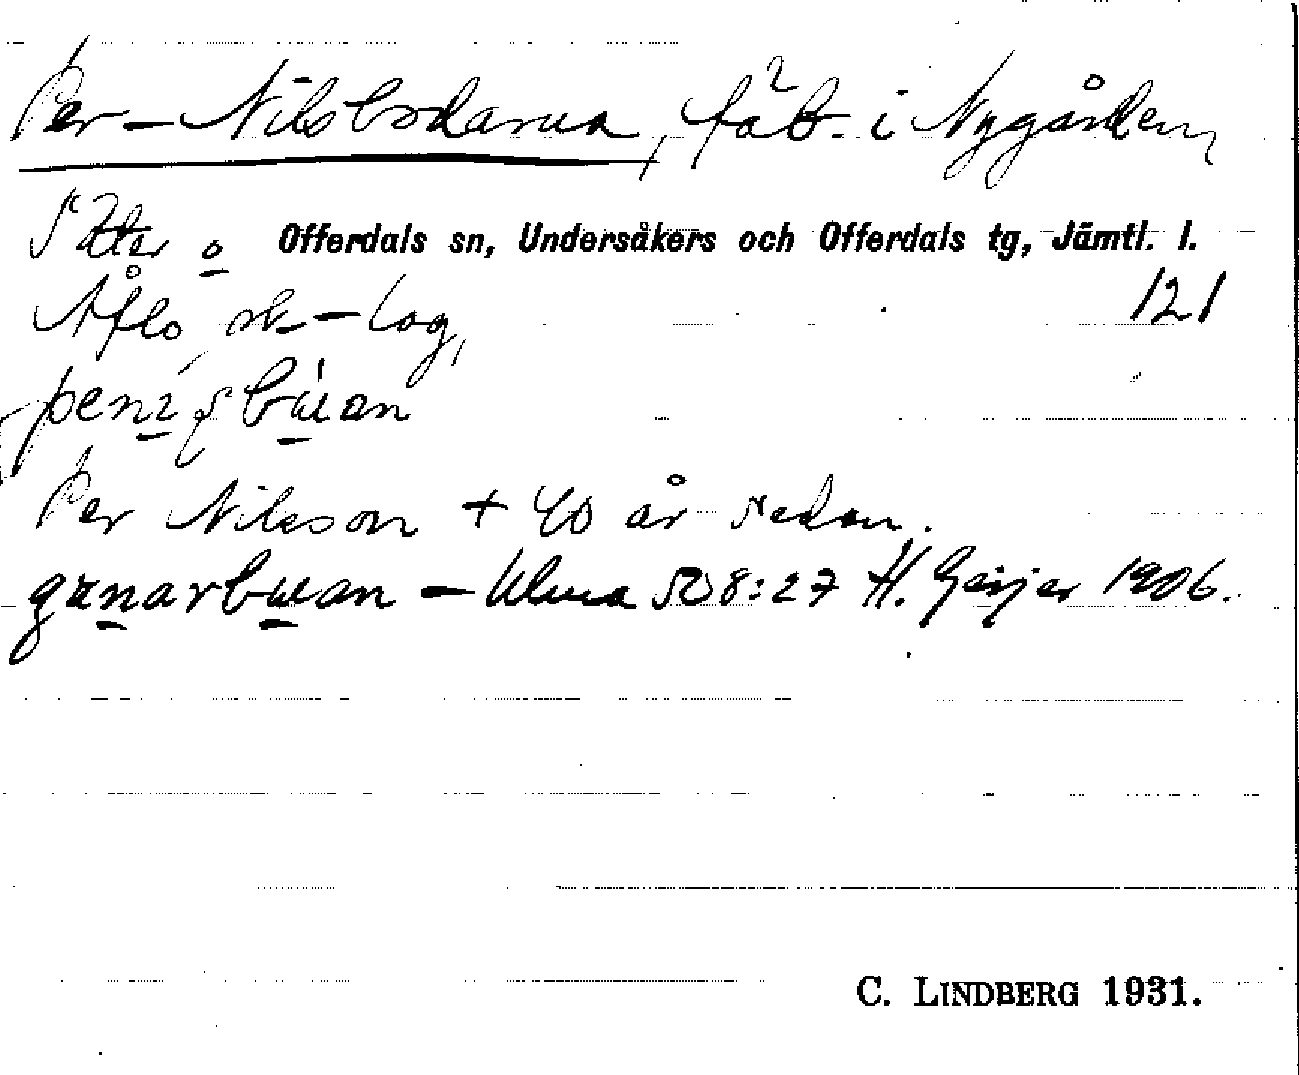 Per-Nilsbodarna, fäb. i Nygården,
Sätter o Offerdals sn, Undersåkers och Offerdals tg, Jämtl. l.
Åflo sk-lag, 121
Per Nilsson + 40 år sedan.
gunarbuan – Ulma 508:27 H. Geijer 1906.
C. LINDBERG 1931.